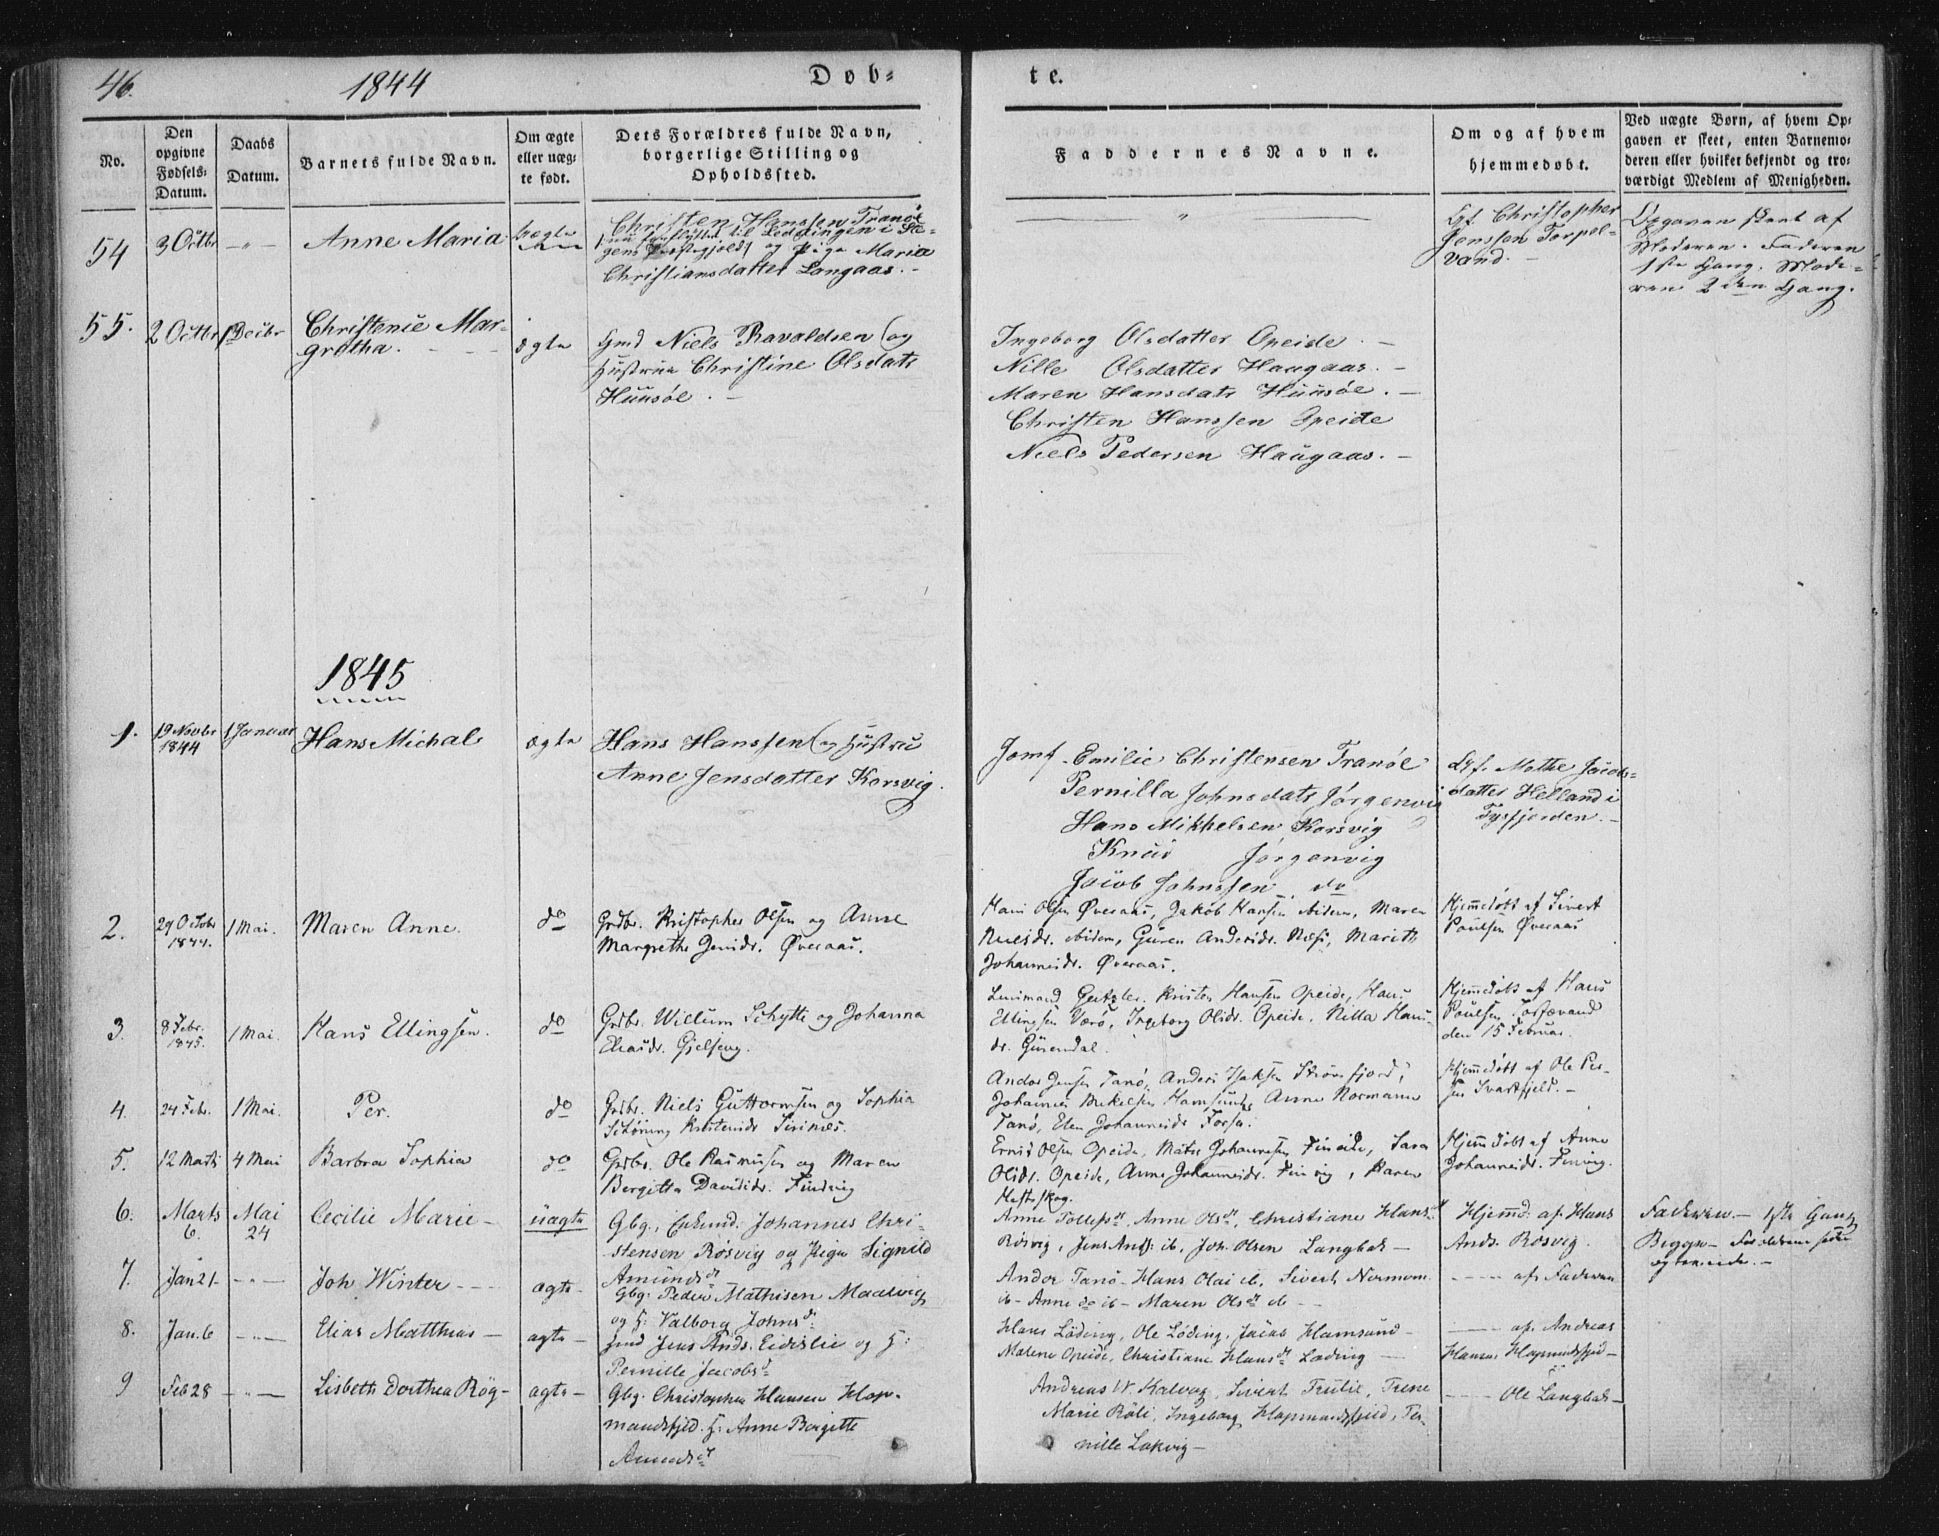 46.
1844
Døb-
te.
No.
Den opgivne Fødsels-Datum.
Daabs Datum.
Barnets fulde Navn.
Om ægte eller uæg-te født.
Dets Forældres fulde Navn, borgerlige Stilling og Opholdssted.
Faddernes Navne.
Om og af hvem hjemmedøbt.
Ved uægte Børn, af hvem Op-gaven er skeet, enten Barnemo-deren eller hvilket bekjendt og tro-værdigt Medlem af Menigheden.
54
3 Octbr
Anne Maria
Christen Hanssen Tranøe
til Lødingen i
gens Præstegjeld og Pige Maria
Christiansdatter Langaas.
Christopher
Jenssen
vand.
Opgaven skeet af
Moderen. Faderen
1ste Gang. Mode-
ren 2den Gang.
55.
2 Octbr
1 Decbr
Christenie Mar-
gretha.
ægte
Gmd Niels Ravaldsen og
Hustrue Christine Olsdatr
Huusøe.
Ingeborg Olsdatter Opeide.
Nille Olsdatter Haugaas.
Maren Hansdatr Huusøe.
Christen Hanssen Opeide
Niels Pedersen Haugaas.
1845
1.
19 Novbr
1844
1 Januar
Hans Michal
ægte
Hans Hanssen og Hustru
Anne Jensdatter Korsvig.
Jomf. Emilie Christensen Tranøe
Pernilla Johnsdatr Jørgenvig
Hans Mikkelsen Korsvig
Knud Jørgenvig
Jacob Johnssen do
Gf. Mothe Jacobs-
datter Helland i
Tysfjorden.
2.
29 Octobr
1844.
1 Mai.
Maren Anne.
do
Grdbr. Kristopher Olsen og Anne
Margrethe Øveraas.
Hans Olsen Øveraas, Jakob Hansen ibidem, Maren
Nielsdr. ibidem, Guren Andersdr. Næss, Marith
Johannesdr. Øveraas.
Hjemmedøbt af Sivert
Poulsen Øveraas
3.
8 Febr.
1845.
1 Mai.
Hans Ellingsen.
do
Grdbr. Willum Schytte og Johanna
Eliasdr. Gjelseng.
Lensmand Kristen Hansen Opeide, Hans
Ellingsen Værø, Ingeborg Olsdr. Opeide, Nilla Hans-
dr. Gurendal.
Hjemmedøbt af Hans
Poulsen
den 15 Februar.
4.
24 Febr.
1 Mai.
Per.
do
Grdbr. Niels Guttormsen og Sophia
Schøning
Andor Jensen Tanø, Anders Isaksen
Johannes Mikelsen Hamsund, Anne Normann
Tanø, Elen Johannesdr Forsa.
Hjemmedøbt af Ole Per-
sen Svartfjeld.
5.
12 Marts
4 Mai
Barbra Sophia
do
Grdbr. Ole Rasmusen og Maren
Bergitta Davidsdr. Findvig
Olsen Opeide, Mats Johannesen Sara
Olsdr. Opeide, Anne Johannesdr. Finvig, Karen
Hestskog.
Hjemmedøbt af Anne
Johannesdr. Finvig.
6.
Marts
6.
Mai
24
Cecilie Marie
uægte
Gbg. Johannes Chri-
stensen Røsvig og Pige Signild
Amundsdr
Anne Tollefsdr, Anne Olsdr, Christiane Hansdr
Røsvig, Jens Ands: ib, Joh. Olsen Langbak
Hjemd: af Hans
Ands. Rosvig.
Faderen 1ste Gang
7.
Jan 21
Joh. Winter
ægte
Gbg. Peder Mathisen Maalvig
og H: Valborg Johnsdr
Andor Tanø - Hans Olai ib, Sivert Normann
ib - Anne do ib - Maren Olsdr ib
af Faderen
8.
Jan. 6
Elias Matthias
ægte
Gmd Jens Ands. Eidislie og H:
Pernille Jacobsdr
Hans Lødin, Ole Løding, Jacob Hamsund
Malene Opeide, Christiane Hansdr Løding
af Andreas
Hansen Hapmundsfjeld
9
Feb 28
Lisbeth Dorthea Røg
ægte
Gbg. Christopher Hansen Hap-
mundsfjeld. H: Anne Bergitte
Amundsdr
Andreas W. Kalvaag, Sivert Trulie, Trine
Marie Røli, Ingeborg Hapmundsfjeld, Per-
nille Lakvig
Ole Langbak